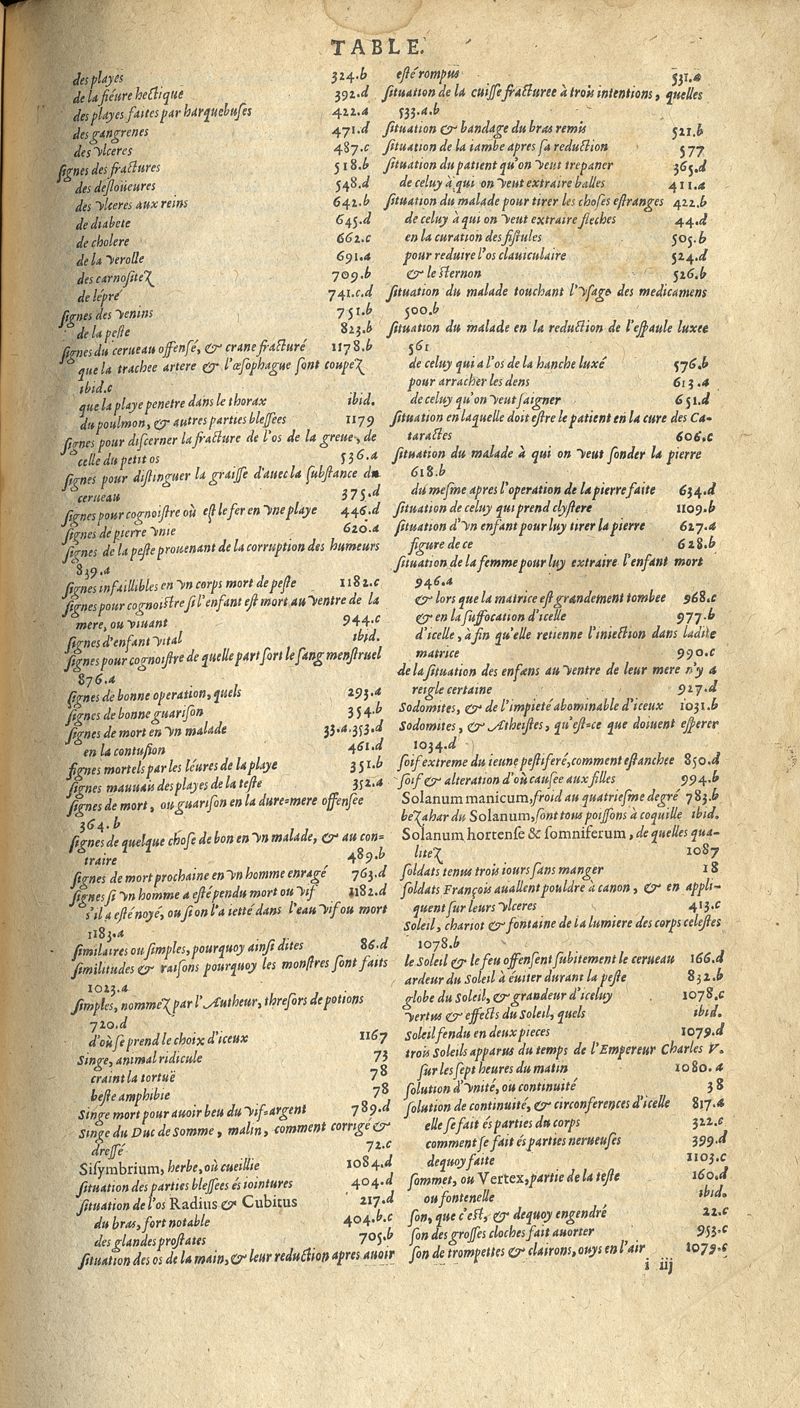 TABLE.
des playes 324.b
de la fiéure hectique 392.d
des playes faites par harquebuses 422.a
des gangrenes 471.d
des vlceres 487.c
signes des fractures 518.b
des desloüeures 548.d
des vlceres aux reins 642.b
de diabete 645.d
de cholere 662.c
de la verolle 691.a
des carnositez 709.b
de lépre 741.c.d
signes des venins 751.b
de la peste 823.b
signes du cerueau offensé, & crane fracturé 1178.b
que la trachee artere & l'œsophague sont coupez
ibid.c
que la playe penetre dans le thorax ibid.
du poulmon, & autres parties blessées 1179
signes pour discerner la fracture de l'os de la greue, de
celle du petit os 536.a
signes pour distinguer la graisse d'auec la substance du
cerueau 375.d
signes pour cognoistre où est le fer en vne playe 446.d
signes de pierre vnie 620.a
signes de la peste prouenant de la corruption des humeurs
839.a
signes infaillibles en vn corps mort de peste 1182.c
signes pour cognoistre si l'enfant est mort au ventre de la
mere, ou viuant 944.c
signes d'enfant vital ibid.
signes pour cognoistre de quelle part sort le sang menstruel
876.a
signes de bonne operation, quels 293.a
signes de bonne guarison 354.b
signes de mort en vn malade 33.a.353.d
en la contusion 461.d
signes mortels par les léures de la playe 351.b
signes mauuais des playes de la teste 352.a
signes de mort, ou guarison en la dure=mere offensee
364.b
signes de quelque chose de bon en vn malade, & au con=
traire 489.b
signes de mort prochaine en vn homme enragé 763.d
signes si vn homme a esté pendu mort ou vif 1182.d
s'il a esté noyé, ou si on l'a ietté dans l'eau vif ou mort
1183.a
similaires ou simples, pourquoy ainsi dites 86.d
similitudes & raisons pourquoy les monstres sont faits
1023.a
simples, nommez par l'Autheur, thresors de potions
720.d
d'où se prend le choix d'iceux 1167
Singe, animal ridicule 73
craint la tortuë 78
beste amphibie 78
Singe mort pour auoir beu du vif=argent 789.d
Singe du Duc de Somme, malin, comment corrigé &
dressé 72.c
Sisymbrium, herbe, où cueillie 1084.d
situation des parties blessees és iointures 404.d
situation de l'os Radius & Cubitus 217.d
du bras, fort notable 404.b.c
des glandes prostates 705.b
situation des os de la main, & leur reduction apres auoir
esté rompus 531.a
situation de la cuisse fracturee à trois intentions, quelles
533.a.b
situation & bandage du bras remis 521.b
situation de la iambe apres sa reduction 577
situation du patient qu'on veut trepaner 365.d
de celuy à qui on veut extraire balles 411.a
situation du malade pour tirer les choses estranges 422.b
de celuy à qui on veut extraire fleches 44.d
en la curation des fistules 505.b
pour reduire l'os clauiculaire 524.d
& le sternon 526.b
situation du malade touchant l'vsage des medicamens
500.b
situation du malade en la reduction de l'espaule luxee
561
de celuy qui a l'os de la hanche luxé 576.b
pour arracher les dens 613.a
de celuy qu'on veut saigner 651.d
situation en laquelle doit estre le patient en la cure des Ca-
taractes 606.c
situation du malade à qui on veut sonder la pierre
618.b
du mesme apres l'operation de la pierre faite 634.d
situation de celuy qui prend clystere 1109.b
situation d'vn enfant pour luy tirer la pierre 627.a
figure de ce 628.b
situation de la femme pour luy extraire l'enfant mort
946.a
& lors que la matrice est grandement tombee 968.c
& en la suffocation d'icelle 977.b
d'icelle, à fin qu'elle retienne l'iniection dans ladite
matrice 990.c
de la situation des enfans au ventre de leur mere n'y a
reigle certaine 927.d
Sodomites, & de l'impieté abominable d'iceux 1031.b
Sodomites, & Atheistes, qu'est=ce que doiuent esperer
1034.d
soif extreme du ieune pestiferé, comment estanchee 850.d
soif & alteration d'où causee aux filles 994.b
Solanum manicum, froid au quatriesme degré 783.b
bezahar du Solanum, sont tous poissons à coquille ibid.
Solanum hortense & somniferum, de quelles qua-
litez 1087
soldats tenus trois iours sans manger 18
soldats François auallent pouldre à canon, & en appli-
quent sur leurs vlceres 413.c
Soleil, chariot & fontaine de la lumiere des corps celestes
1078.b
le Soleil & le feu offensent subitement le cerueau 166.d
ardeur du Soleil à éuiter durant la peste 832.b
globe du Soleil, & grandeur d'iceluy 1078.c
vertus & effects du Soleil, quels ibid.
Soleil fendu en deux pieces 1079.d
trois Soleils apparus du temps de l'Empereur Charles V.
sur les sept heures du matin 1080.a
solution d'vnité, ou continuité 38
solution de continuité, & circonferences d'icelle 817.a
elle se fait és parties du corps 322.c
comment se fait és parties nerueuses 399.d
dequoy faite 1103.c
sommet, ou Vertex, partie de la teste 160.d
ou fontenelle ibid.
son, que c'est, & dequoy engendré 22.c
son des grosses cloches fait auorter 953.c
son de trompettes & clairons, ouys en l'air 1079.c
i iij